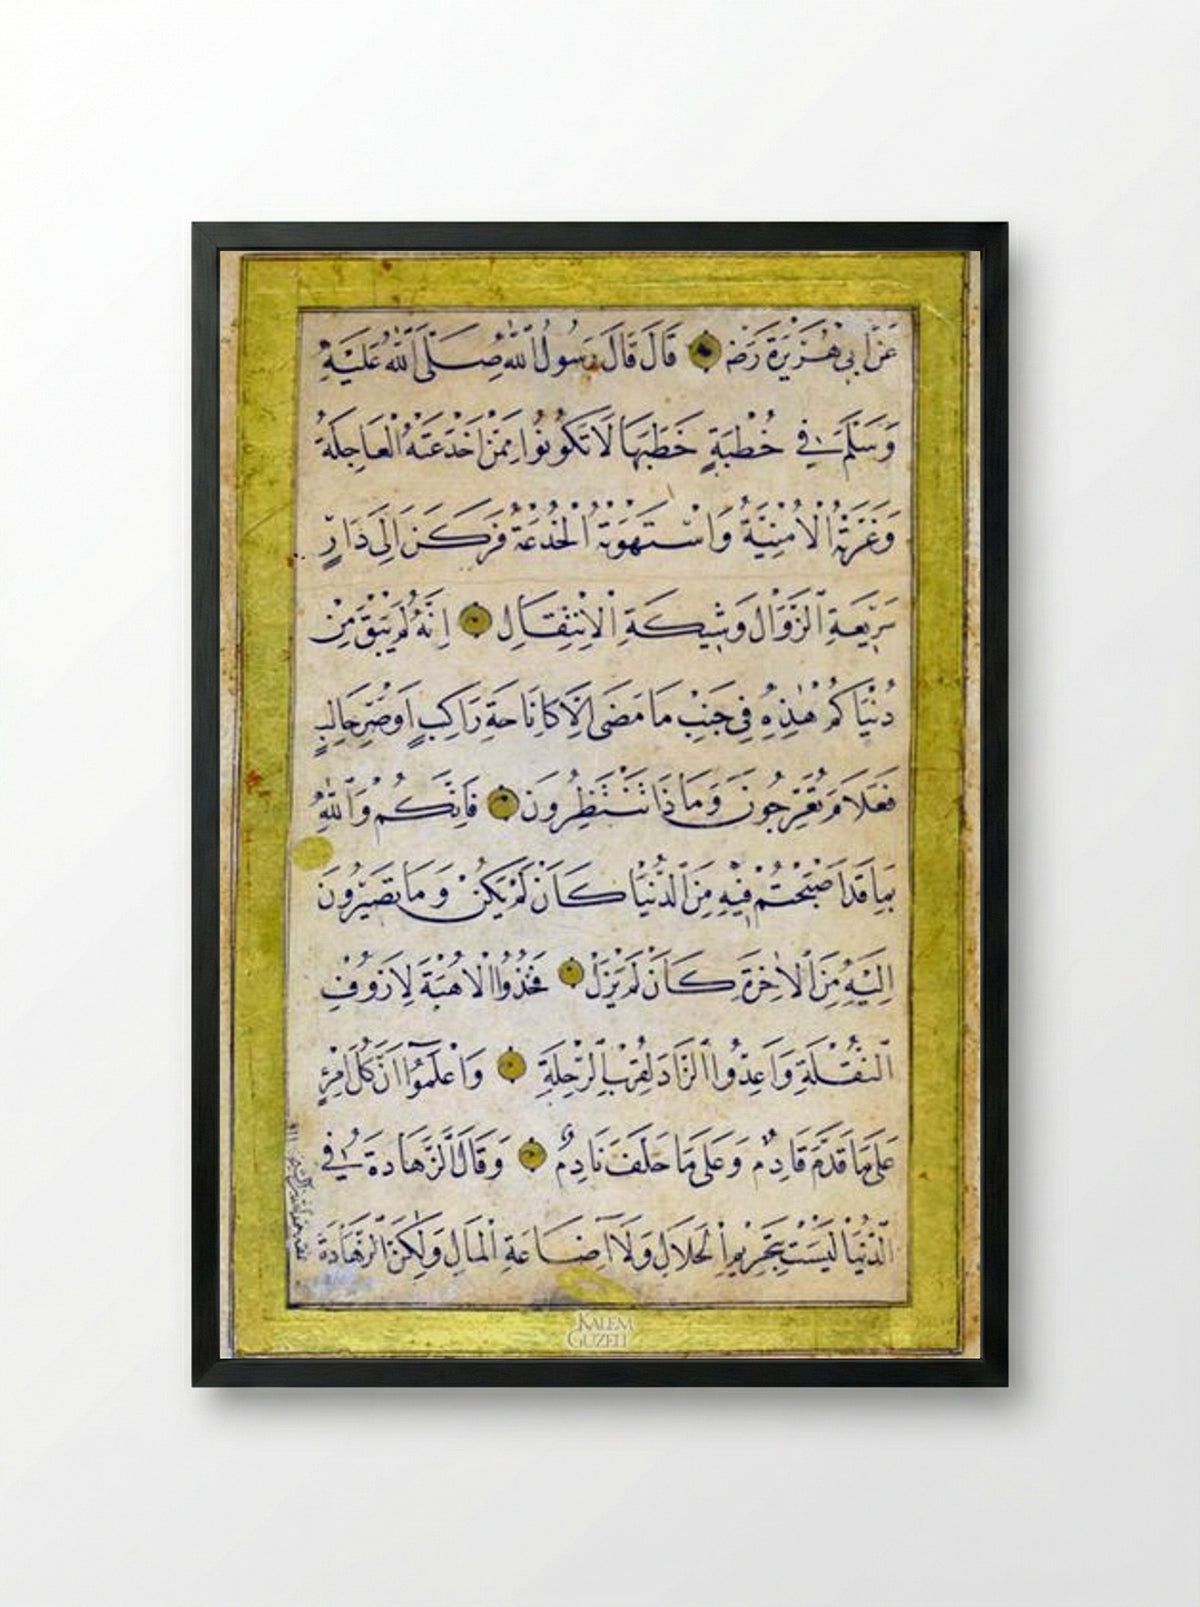 عَنْ اَبِي هُرَيْرَةَ رَضَهُ قَالَ قَالَ رَسُولُ اللّٰهِ صَلَّى اللّٰهُ عَلَيْهِ
وَسَلَّمَ فِي خُطْبَةٍ خَطَبَهَا لَا تَكُونُوا مِمَّنْ اخْدَعَتْهُ الْعَاجِلَةُ
وَغَرَّتْهُ الْاُمْنِيَّةُ وَاسْتَهْوَتْهُ الْخُدْعَةُ فَرَكَنَ اِلَى دَارٍ
سَرِيعَةِ الزَّوَالِ وَشِيكَةِ الْاِنْتِقَالِ اِنَّهُ لَمْ يَبْقَ مِنْ
دُنْيَاكُمْ هٰذِهِ فِي جَنْبِ مَا مَضَى اِلَّا كَاِنَاخَةِ رَاكِبٍ اَوْصَرِّ حَالِبٍ
فَعَلَامَ تُعَرِّجُونَ وَمَاذَا تَنْتَظِرُونَ فَاِنَّكُمْ وَاللّٰهِ
بِمَا قَدْ اَصْبَحْتُمْ فِيهِ مِنَ الدُّنْيَا كَاَنْ لَمْ يَكُنْ وَمَا تَصِيرُونَ
اِلَيْهِ مِنَ الْاٰخِرَةِ كَاَنْ لَمْ يَزَلْ فَخُذُوا الْاُهْبَةَ لِاَزُوفِ
النُّقْلَةِ وَاَعِدُّوا الزَّادَ لِقُرْبِ الرِّحْلَةِ وَاعْلَمُوا اَنَّ كُلَّ امْرِئٍ
عَلَى مَا قَدَّمَ قَادِمٌ وَعَلَى مَا خَلَّفَ نَادِمٌ وَقَالَ الزَّهَادَةُ فِي
الدُّنْيَا لَيْسَتْ بِتَحْرِيمِ الْحَلَالِ وَلَا اِضَاعَةِ الْمَالِ وَلٰكِنَّ الزَّهَادَةَ
KALEM
GUZELI